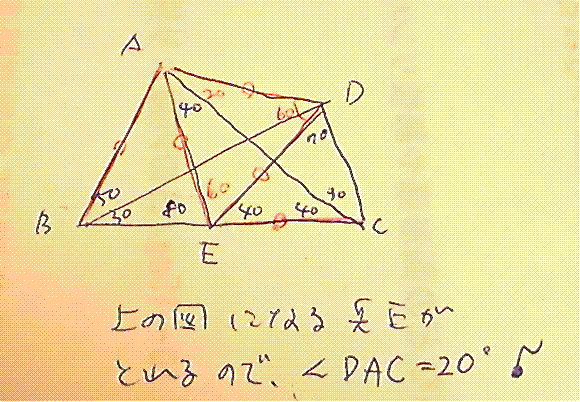 A
20
D
40
60
70
50
60
30
80
40
40
B
E
C
上の図になる点Eが
とれるので、∠DAC=20°♪